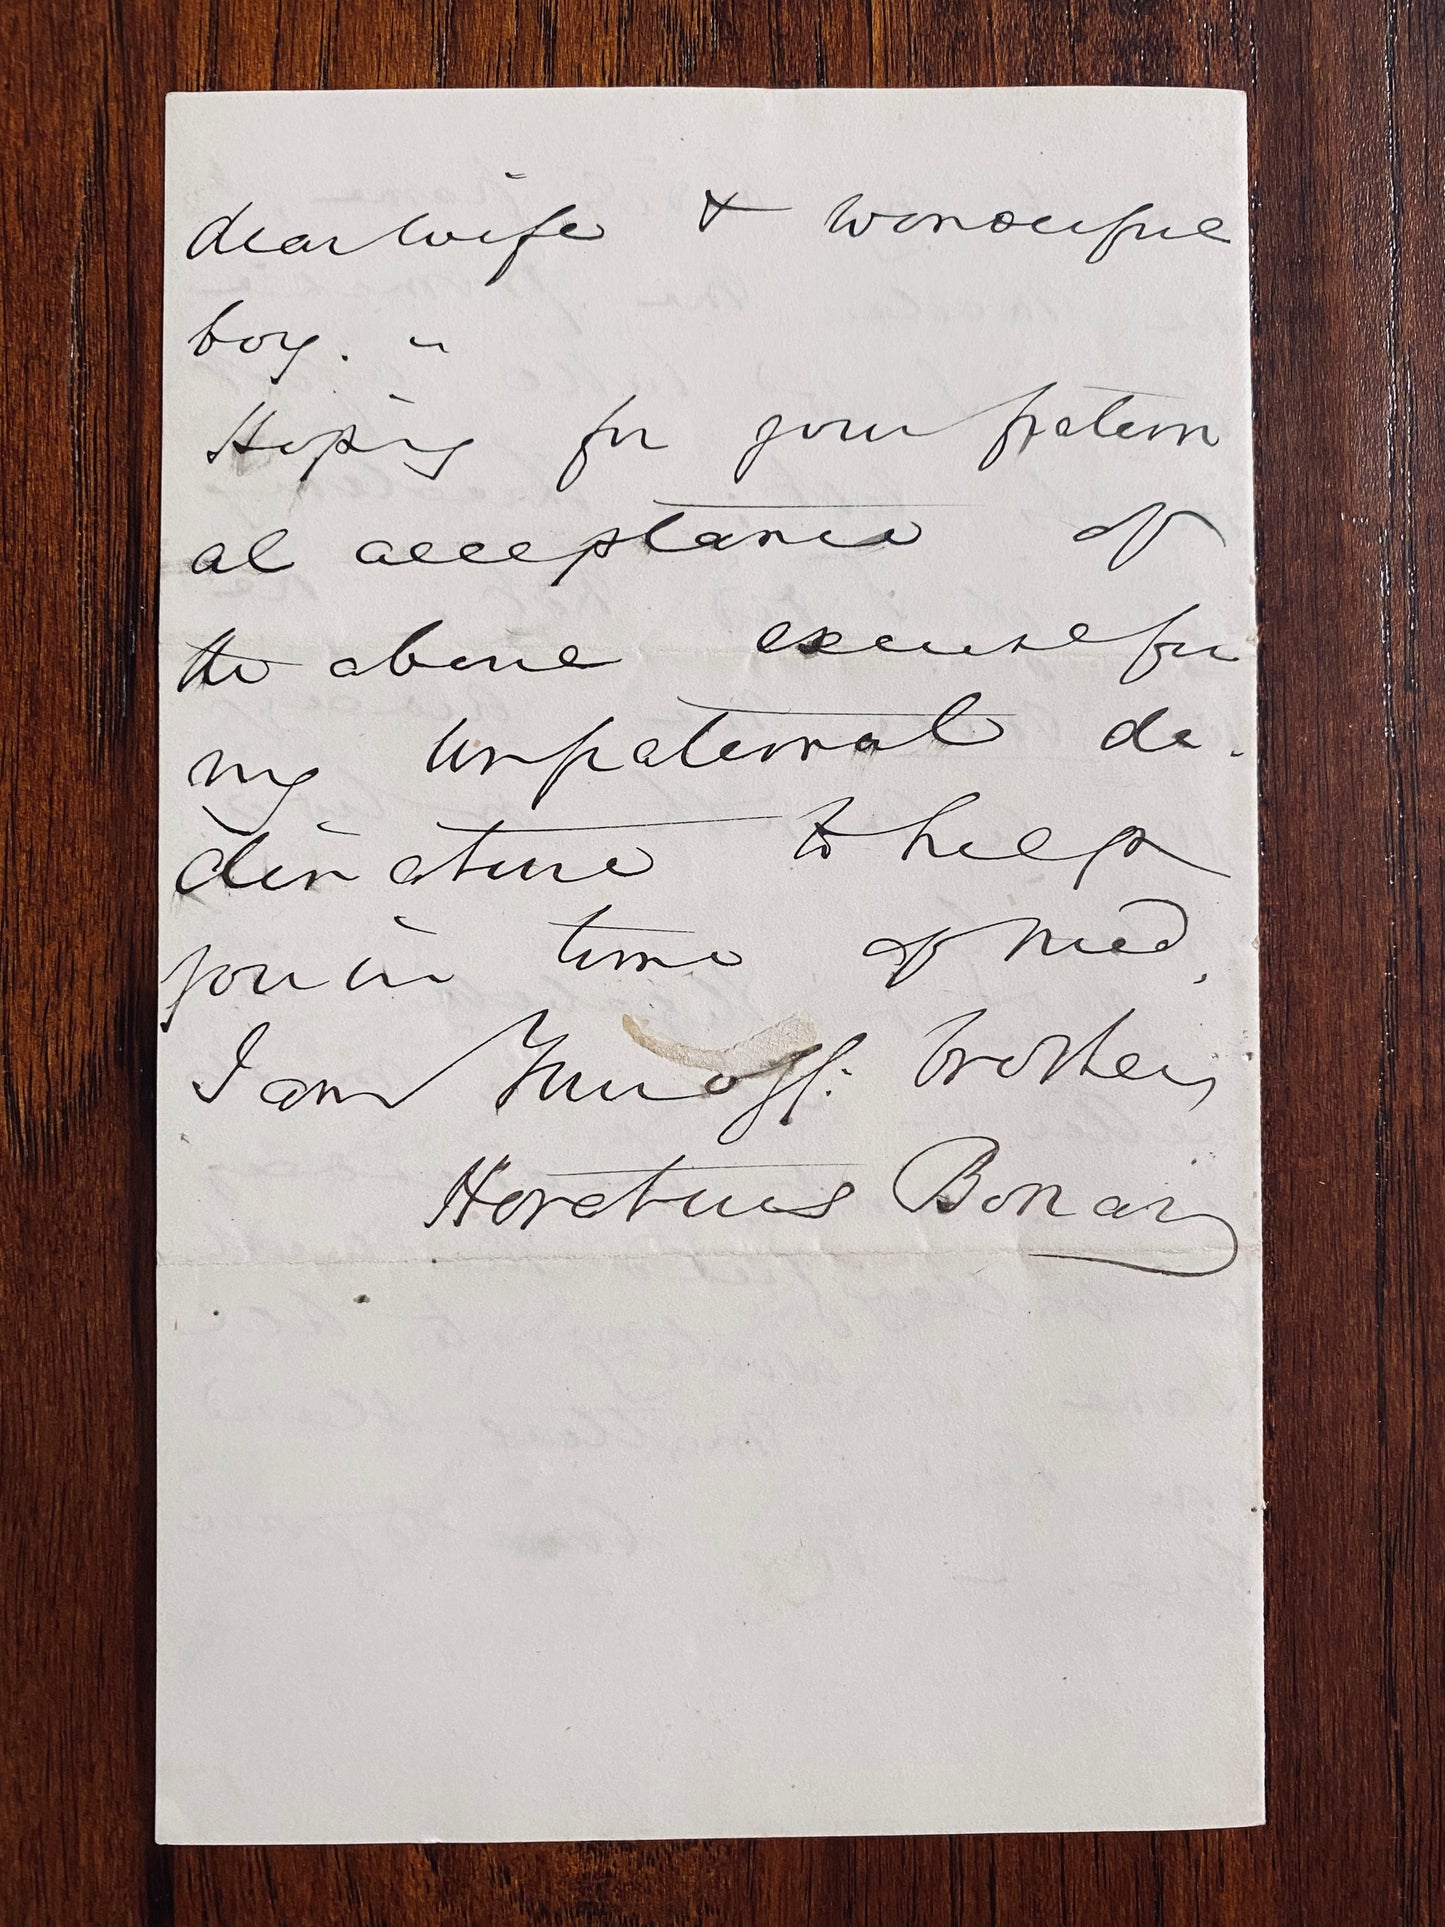 dear wife & wonderful
boy. "
Hoping for your fratern
al acceptance of
the above excuse for
my unpaternal de-
clinature to help
you in time of need,
I am Your aff: brother,
Horatius Bonar